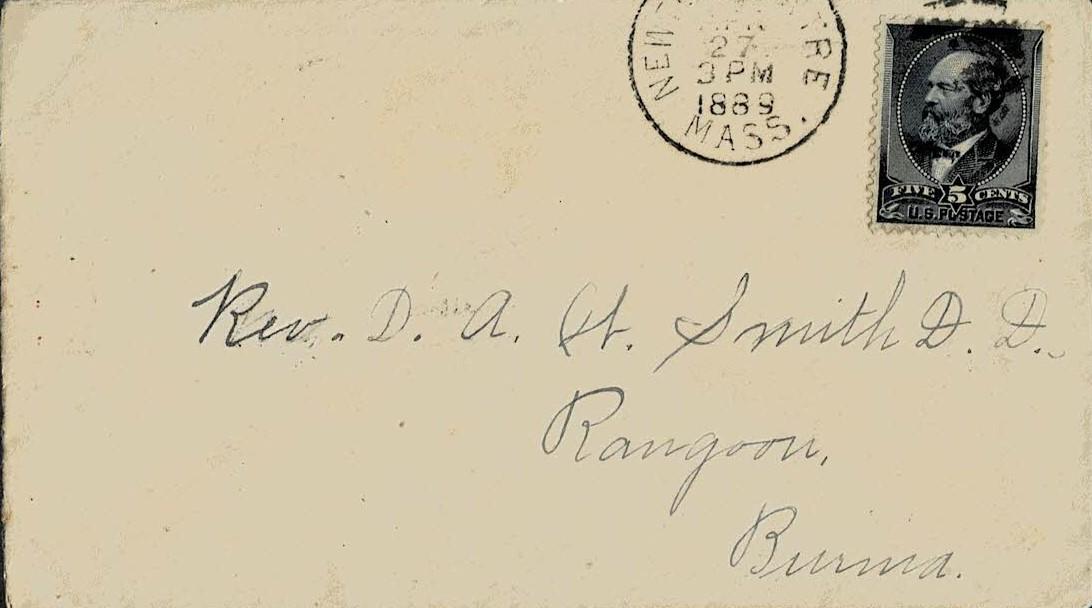 27
3 PM
1889
MASS.
FIVE 5 CENTS
U.S. POSTAGE
Rev. D. A. W. Smith D. D.
Rangoon,
Burma.